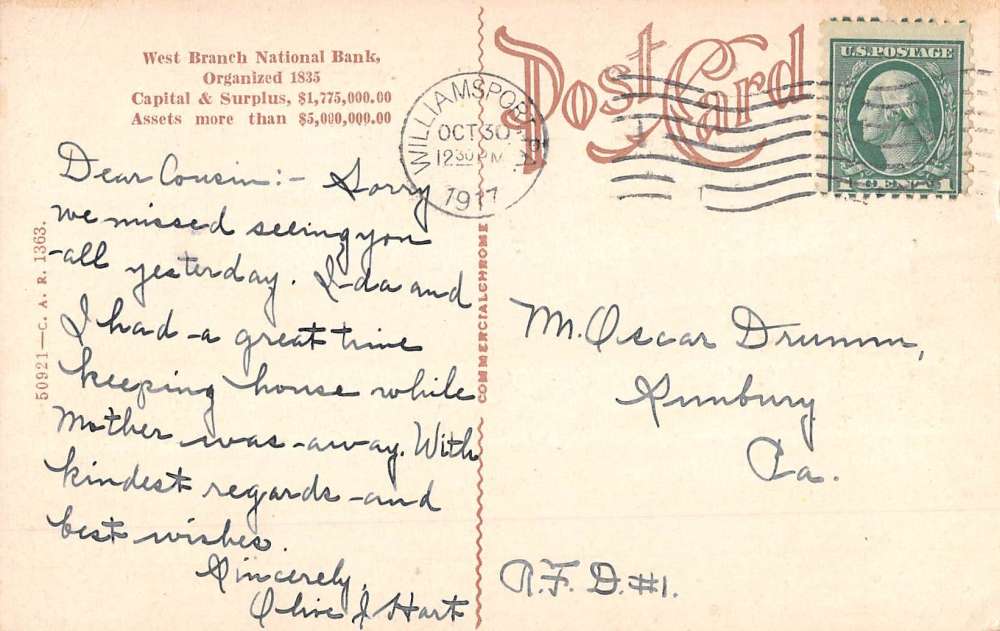 West Branch National Bank,
Organized 1835
Capital & Surplus, $1,775,000.00
Assets more than $5,000,000.00
Post Card
WILLIAMSPORT PA
OCT 30
12 30 PM
1917
U.S. POSTAGE
1 CENT 1
Dear Cousin:- Sorry
we missed seeing you
all yesterday. Ida and
I had a great time
keeping house while
Mother was away. With
kindest regards and
best wishes.
Sincerely,
Olive J Hart
50921—C. A. R. 1363.
COMMERCIALCHROME
Mr. Oscar Drumm,
Sunbury
Pa.
R.F.D. #1.